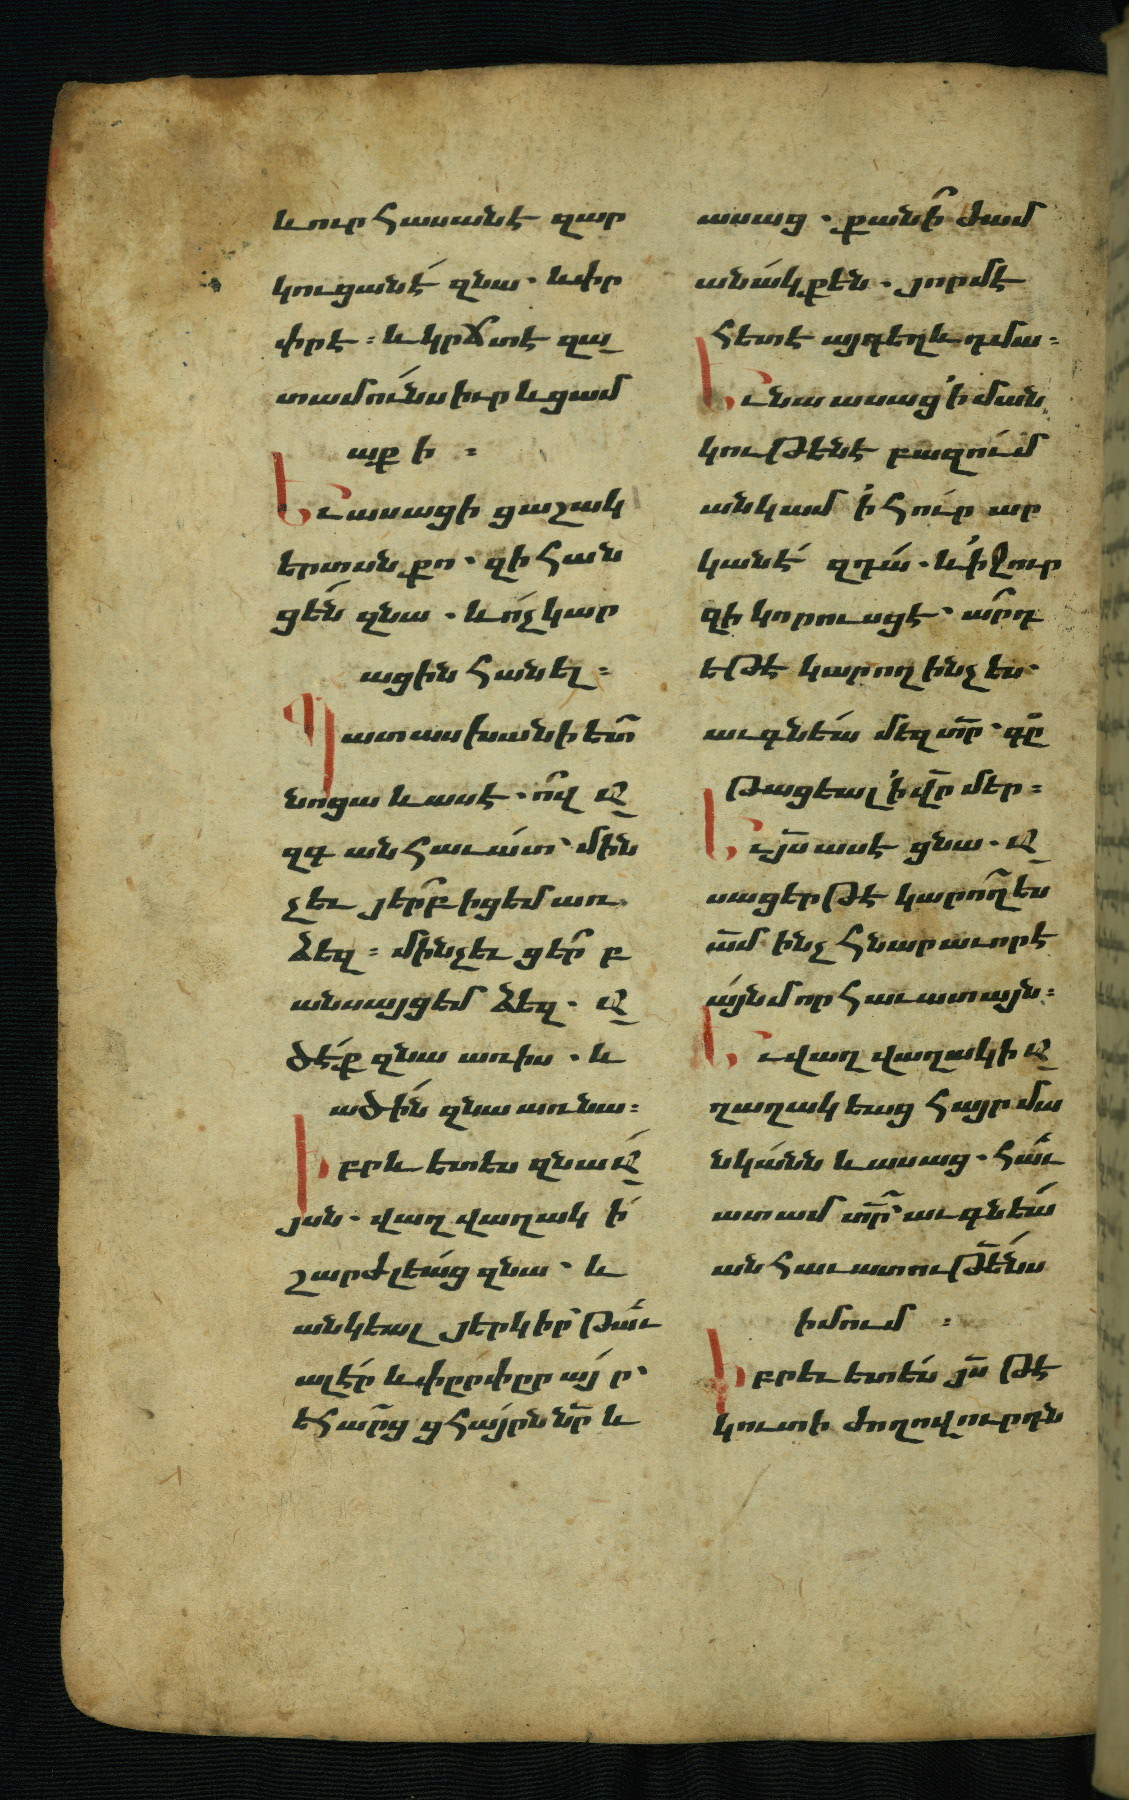 և ուր հասանէ զար
կուցանէ́ զնա. և փր
փրէ: և կրճտէ զա
տամունս իւր և ցամ
աքի :
Եւ ասացի ցաշակ
երտսն քո. զի հան
ցե́ն զնա. և ո́չ կար
ացին հանել:
Պատասխանի ետ
նոցա և ասէ. ո՜վ ա
զգ անհաւատ՝ մին
չեւ յե՞րբ իցեմ առ
ձեզ: մինչեւ ցե՞ր բ
անսայցեմ ձեզ. ա
ծէ́ք զնա առիս. և
ածի́ն զնա առ նա:
Իբրև ետես զնա ա
յսն. վաղվաղակի
շարժլեա́ց զնա. և
անկեալ յերկիր՝ թաւ
ալէ́ր և փըրփըրայր՝
Եհարց ցհայրն նր և
ասաց. քանի՞ ժամ
անակք են. յորմէ
հետէ այդ եղև դմա:
Եւ նա ասաց ի ման
կութենէ բազում
անկամ ի հուր ար
կանէ́ զդա. և ի ջուր
զի կորուսցէ՝ արդ
եթէ կարող ինչ ես՝
աւգնեա́ մեզ տր՝ գը
թացեալ ի վր մեր:
Եւ յս ասէ ցնա. ա
սացեր թէ կարող ես
ամ ինչ հնարաւորէ
այնմ որ հաւատայն:
Եւ վաղվաղակի ա
ղաղակեաց հայր մա
նկանն և ասաց. հաւ
ատամ տր՝ աւգնեա́
անհաւատութեն́ս
իմում :
Իբրեւ ետես յս թէ
կուտի ժողովուրդն